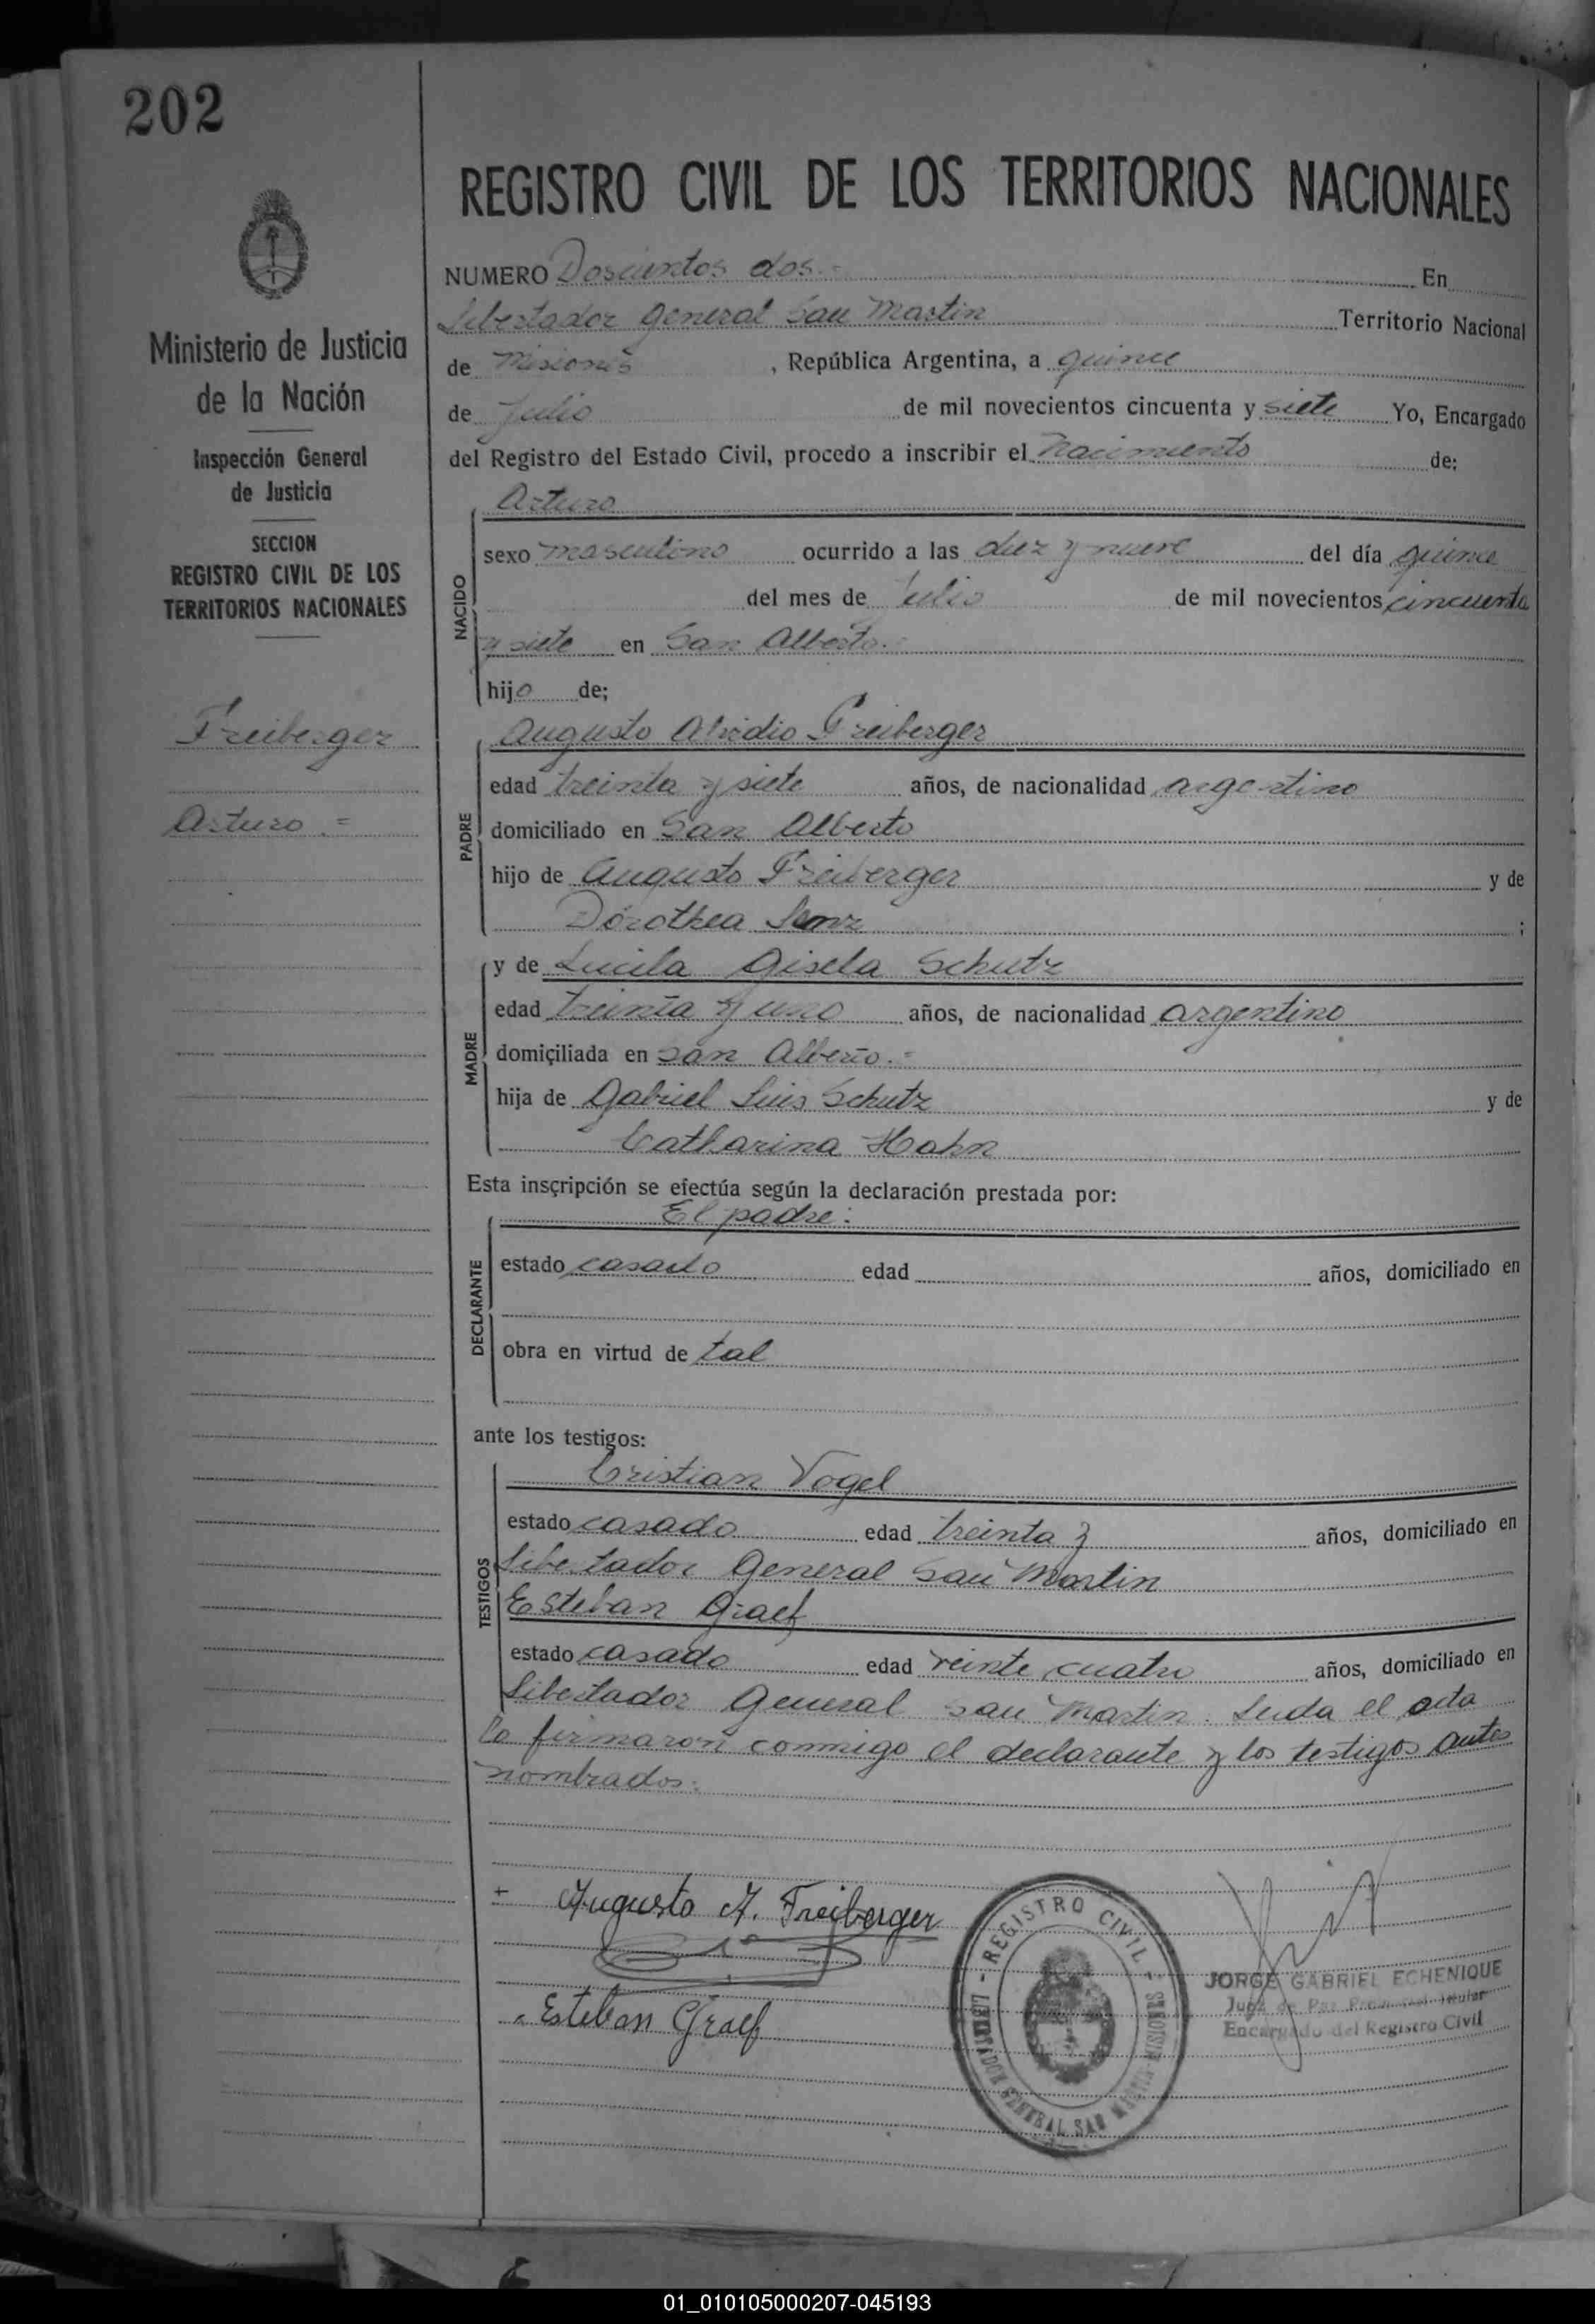 202
REGISTRO CIVIL DE LOS TERRITORIOS NACIONALES
Ministerio de Justicia
de la Nación
Inspección General
de Justicia
SECCION
REGISTRO CIVIL DE LOS
TERRITORIOS NACIONALES
Freiberger
Arturo.=
NUMERO Doscientos dos.= En
Libertador General San Martin Territorio Nacional
de Misiones, República Argentina, a quince
de Julio de mil novecientos cincuenta y siete Yo, Encargado
del Registro del Estado Civil, procedo a inscribir el nacimiento de:
NACIDO
Arturo
sexo masculino ocurrido a las diez y nueve del día quince
del mes de Julio de mil novecientos cincuenta
y siete en San Alberto.=
hijo de;
PADRE
Augusto Freiberger
edad treinta y siete años, de nacionalidad argentino
domiciliado en San Alberto
hijo de Augusto Freiberger y de
Dorothea ;
MADRE
y de Lucila Gisela Schutz
edad treinta y uno años, de nacionalidad argentino
domiciliada en San Alberto.=
hija de Gabriel Luis Schutz y de
Catharina Hahn
Esta inscripción se efectúa según la declaración prestada por:
DECLARANTE
El padre:
estado casado edad años, domiciliado en
obra en virtud de tal
ante los testigos:
TESTIGOS
Cristian Vogel
estado casado edad treinta y años, domiciliado en
Libertador General San Martin
Esteban Graef
estado casado edad veinte cuatro años, domiciliado en
Libertador General San Martin. Leida el acta
la firmaron conmigo el declarante y los testigos antes
nombrados.
Augusto A. Freiberger
Esteban Graef
REGISTRO CIVIL - MISIONES
LIBERTADOR GENERAL SAN MARTIN
JORGE GABRIEL ECHENIQUE
Juez de Paz Provincial Titular
Encargado del Registro Civil
01_010105000207-045193